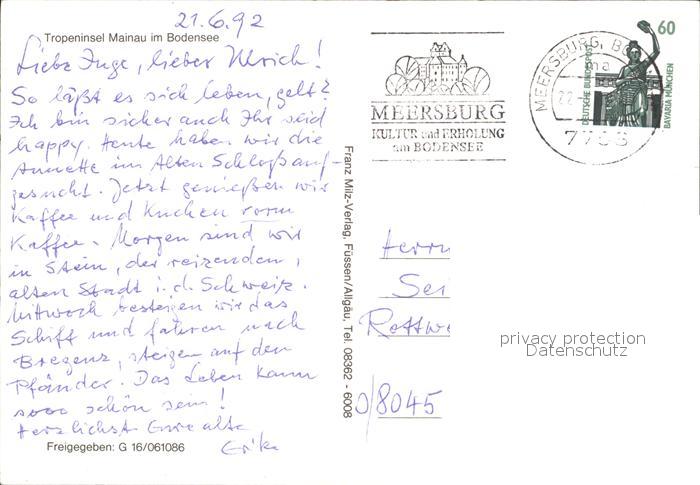 21.6.92
Tropeninsel Mainau im Bodensee
Liebe Inge, lieber Ulrich!
So läßt es sich leben, gelt?
Ich bin sicher auch Ihr seid
happy. Heute haben wir die
Annette im Alten Schloß auf-
gesucht. Jetzt genießen wir
Kaffee und Kuchen vorm
Kaffee. Morgen sind wir
in Stein, der reizenden,
alten Stadt i. d. Schweiz.
Mittwoch besteigen wir das
Schiff und fahren nach
Bregenz, steigen auf den
Pfänder. Das Leben kann
sooo schön sein!
Herzlichst Eure alte
Erika
Freigegeben: G 16/061086
Franz Milz-Verlag, Füssen/Allgäu, Tel. 08362 - 6008
MEERSBURG
KULTUR und ERHOLUNG
am BODENSEE
MEERSBURG, BO
ma
22
7758
60
DEUTSCHE BUNDESPOST
BAVARIA MÜNCHEN
Herrn
Sei
Rottwe
O/8045
privacy protection
Datenschutz